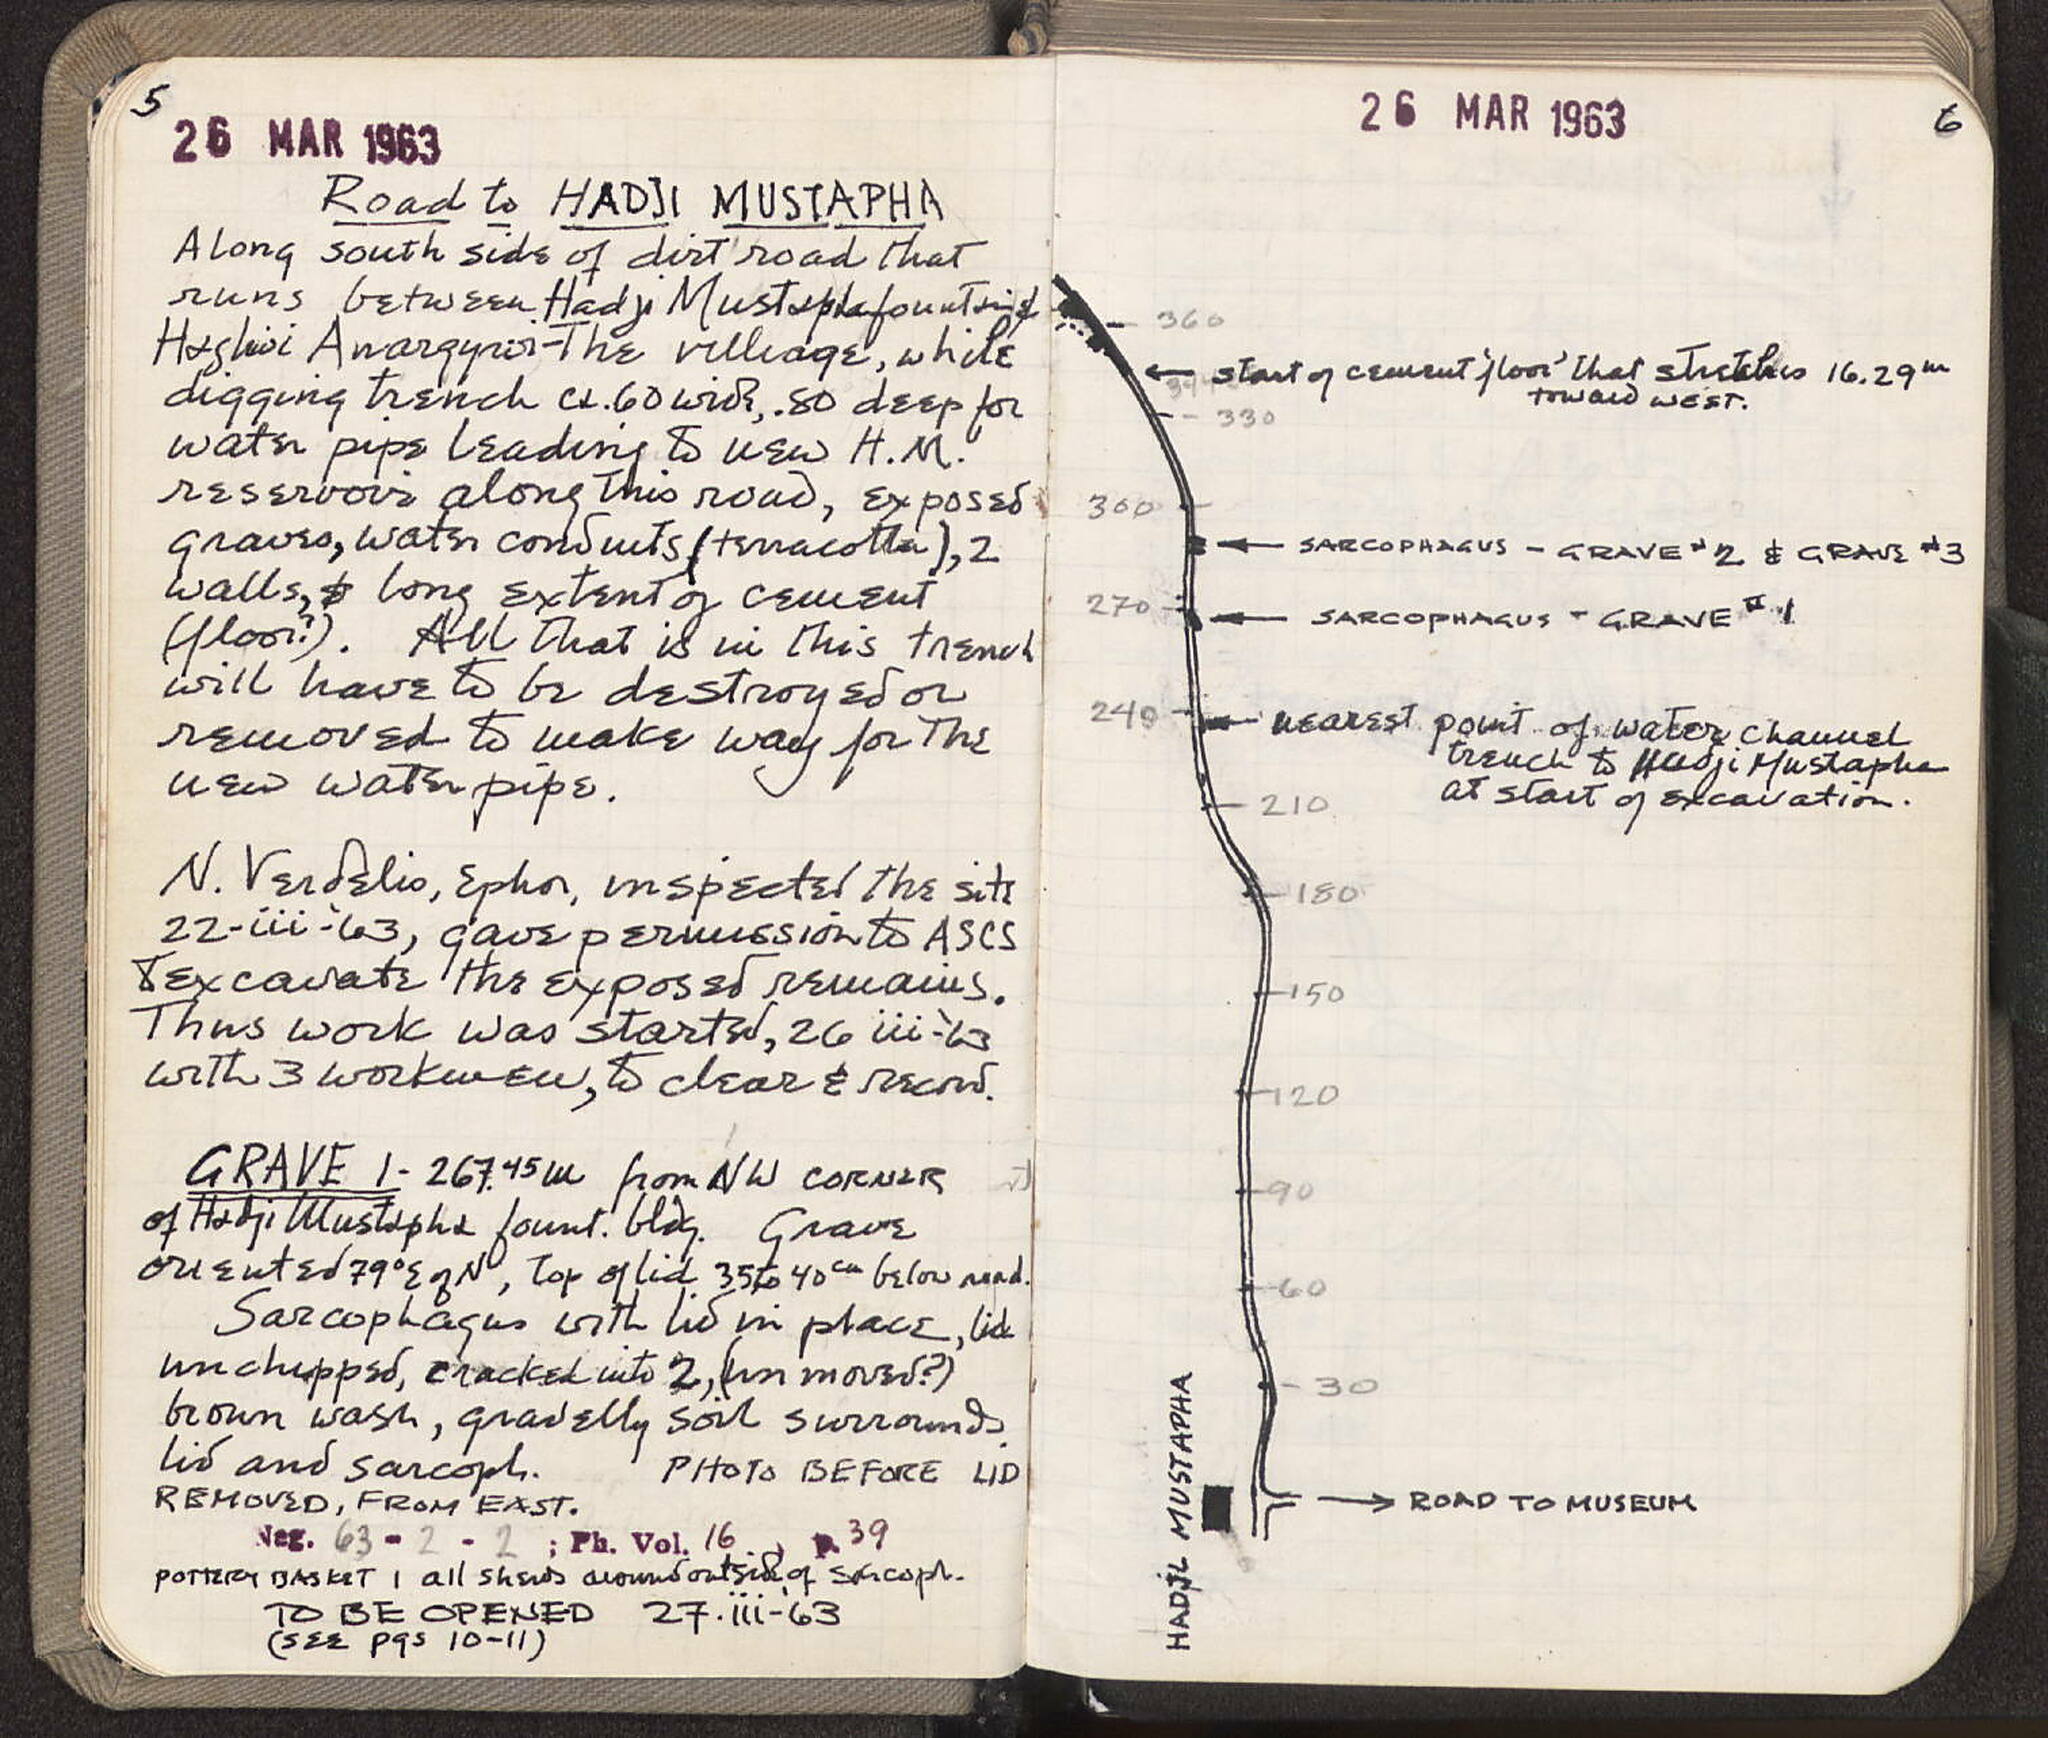 5
26 MAR 1963
Road to HADJI MUSTAPHA
Along south side of dirt road that
runs between Hadji Mustapha fountain &
Haghioi Anargyroi - The village, while
digging trench ca. .60 wide, .80 deep for
water pipe leading to new H.M.
reservoir along this road, exposed
graves, water conduits (terracotta), 2
walls, & long extent of cement
(floor?). All that is in this trench
will have to be destroyed or
removed to make way for the
new water pipe.
N. Verdelis, Ephor, inspected the site
22-iii-'63, gave permission to ASCS
to excavate the exposed remains.
Thus work was started, 26 iii-'63
with 3 workmen, to clear & record.
GRAVE 1 - 267.45m from NW CORNER
of Hadji Mustapha fount. bldg. Grave
oriented 79° E of N, top of lid 35 to 40cm below road.
Sarcophagus with lid in place, lid
unchipped, cracked into 2, (un moved?)
brown wash, gravelly soil surrounds
lid and sarcoph. PHOTO BEFORE LID
REMOVED, FROM EAST.
Neg. 63 - 2 - 2 ; Ph. Vol. 16, p. 39
POTTERY BASKET 1 all sherds around outside of sarcoph.
TO BE OPENED 27.iii-'63
(SEE pgs 10-11)
26 MAR 1963
6
360
start of cement 'floor' that stretches 16.29m
toward west.
330
300
SARCOPHAGUS - GRAVE #2 & GRAVE #3
270
SARCOPHAGUS - GRAVE #1
240
nearest point of water channel
trench to Hadji Mustapha
at start of excavation.
210
180
150
120
90
60
30
HADJI MUSTAPHA
ROAD TO MUSEUM